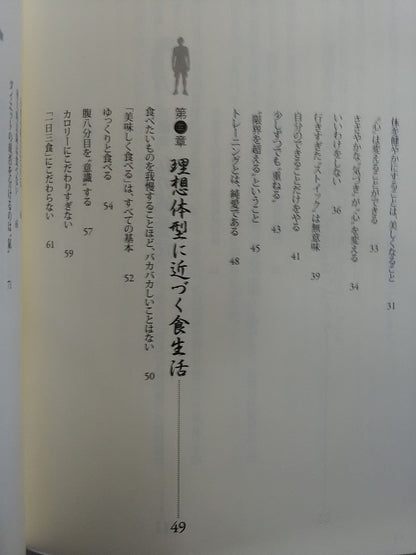 体を健やかにすることは、美しくなること 31
“心”は変えることができる 33
ささやかな“気づき”が“心”を変える 34
いいわけをしない 36
行きすぎた“ストイック”は無意味 39
自分のできることだけをやる 41
少しずつでも“重ねる” 43
“限界を超える”ということ 45
トレーニングとは、純愛である 48
第三章 理想体型に近づく食生活 49
食べたいものを我慢することほど、バカバカしいことはない 50
「美味しく食べる」は、すべての基本 52
ゆっくりと食べる 54
腹八分目を“意識”する 57
カロリーにこだわりすぎない 59
「一日三食」にこだわらない 61